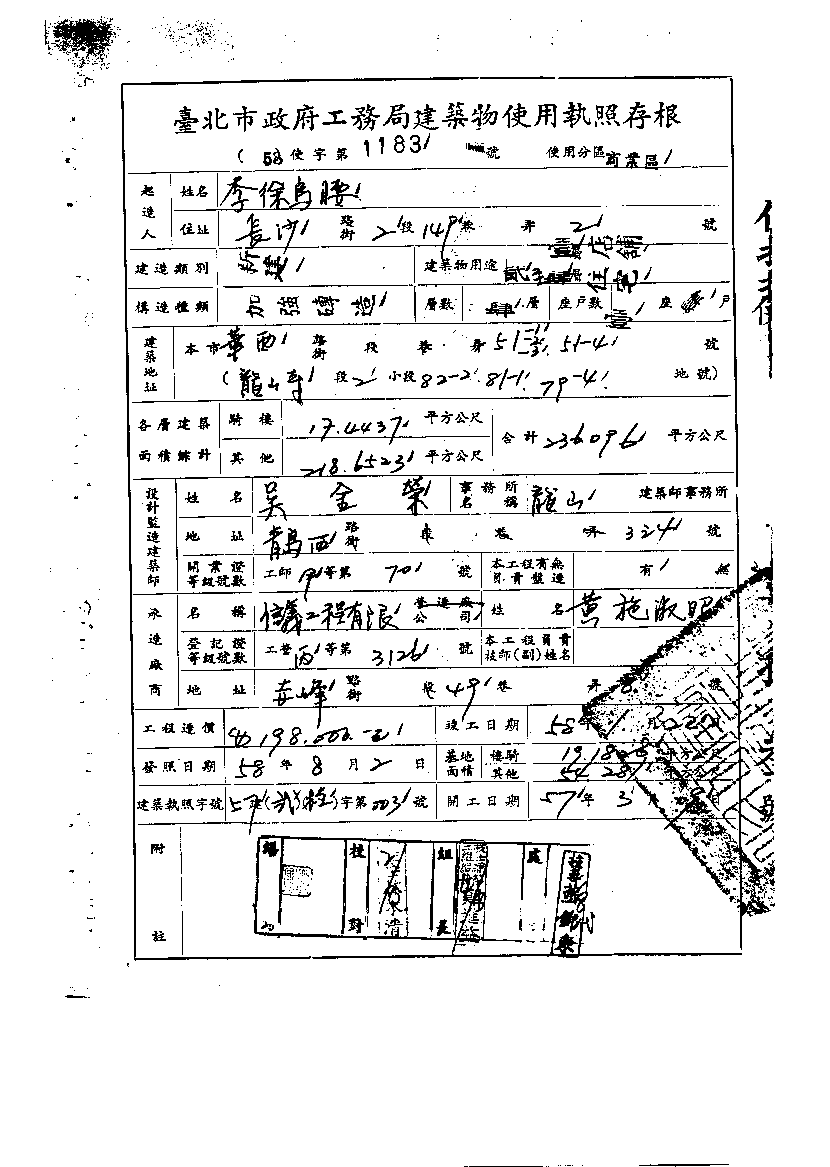 臺北市政府工務局建築物使用執照存根
(58使字第1183號 使用分區商業區
起造人 姓名 李徐烏腰
住址 長沙路街2段149巷 弄2號
建造類別 新建 建築物用途 店舖 住宅
構造種類 加強磚造 層數 肆層 座戶數 座 戶
建築地址 本市華西路街 段 巷 弄51-1 -3 51-4號
(龍山寺段2小段82-2 81-1 79-4地號)
各層建築面積總計 騎樓 17.4437平方公尺 合計236.096平方公尺
其他 218.6523平方公尺
設計監造建築師 姓名 吳金榮 事務所名稱 龍山建築師事務所
地址 青島西路街 段 巷 弄324號
開業證等級號數 工師甲等第701號 本工程有無負責監造 有 無
承造廠商 名稱 信義工程有限營造廠公司 姓名 黃施淑昭
登記證等級號數 工登丙等第3126號 本工程負責技師(副)姓名
地址 赤峰路街 段49巷 弄8號
工程造價 198,000 竣工日期 58年1月22日
發照日期 58年8月2日 基地面積 騎樓 平方公尺
其他 平方公尺
建築執照字號 字第003號 開工日期 57年3月 日
附註
校對 組長 處